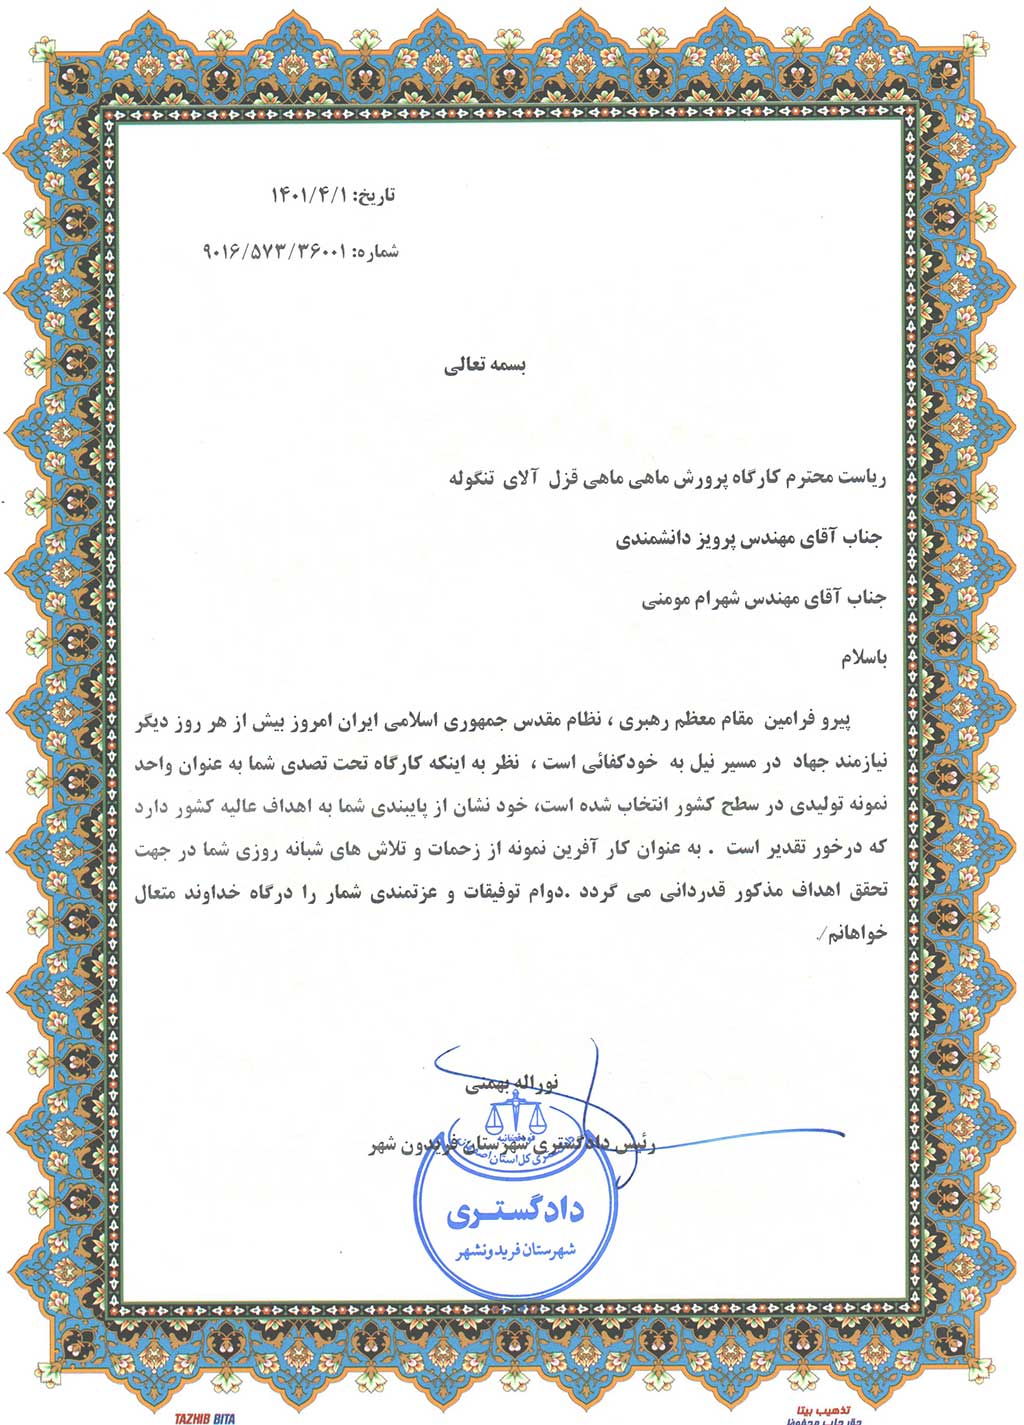 تاریخ: ۱۴۰۱/۴/۱
شماره: ۹۰۱۶/۵۷۳/۳۶۰۰۱
بسمه تعالی
ریاست محترم کارگاه پرورش ماهی ماهی قزل آلای تنگوله
جناب آقای مهندس پرویز دانشمندی
جناب آقای مهندس شهرام مومنی
باسلام
پیرو فرامین مقام معظم رهبری ، نظام مقدس جمهوری اسلامی ایران امروز بیش از هر روز دیگر
نیازمند جهاد در مسیر نیل به خودکفائی است ، نظر به اینکه کارگاه تحت تصدی شما به عنوان واحد
نمونه تولیدی در سطح کشور انتخاب شده است، خود نشان از پایبندی شما به اهداف عالیه کشور دارد
که درخور تقدیر است . به عنوان کار آفرین نمونه از زحمات و تلاش های شبانه روزی شما در جهت
تحقق اهداف مذکور قدردانی می گردد .دوام توفیقات و عزتمندی شمار را درگاه خداوند متعال
خواهانم/.
نوراله بهمنی
رئیس دادگستری شهرستان فریدون شهر
قوه قضائیه
دادگستری
شهرستان فریدونشهر
TAZHIB BITA
تذهیب بیتا
حق چاپ محفوظ